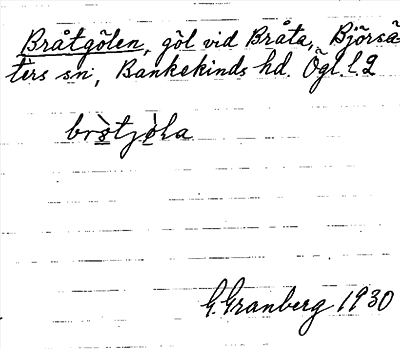 Bråtgölen, göl vid Bråta, Björsä
ters sn, Bankekinds hd. Ögl. l 2
bròtjòla
G. Granberg 1930